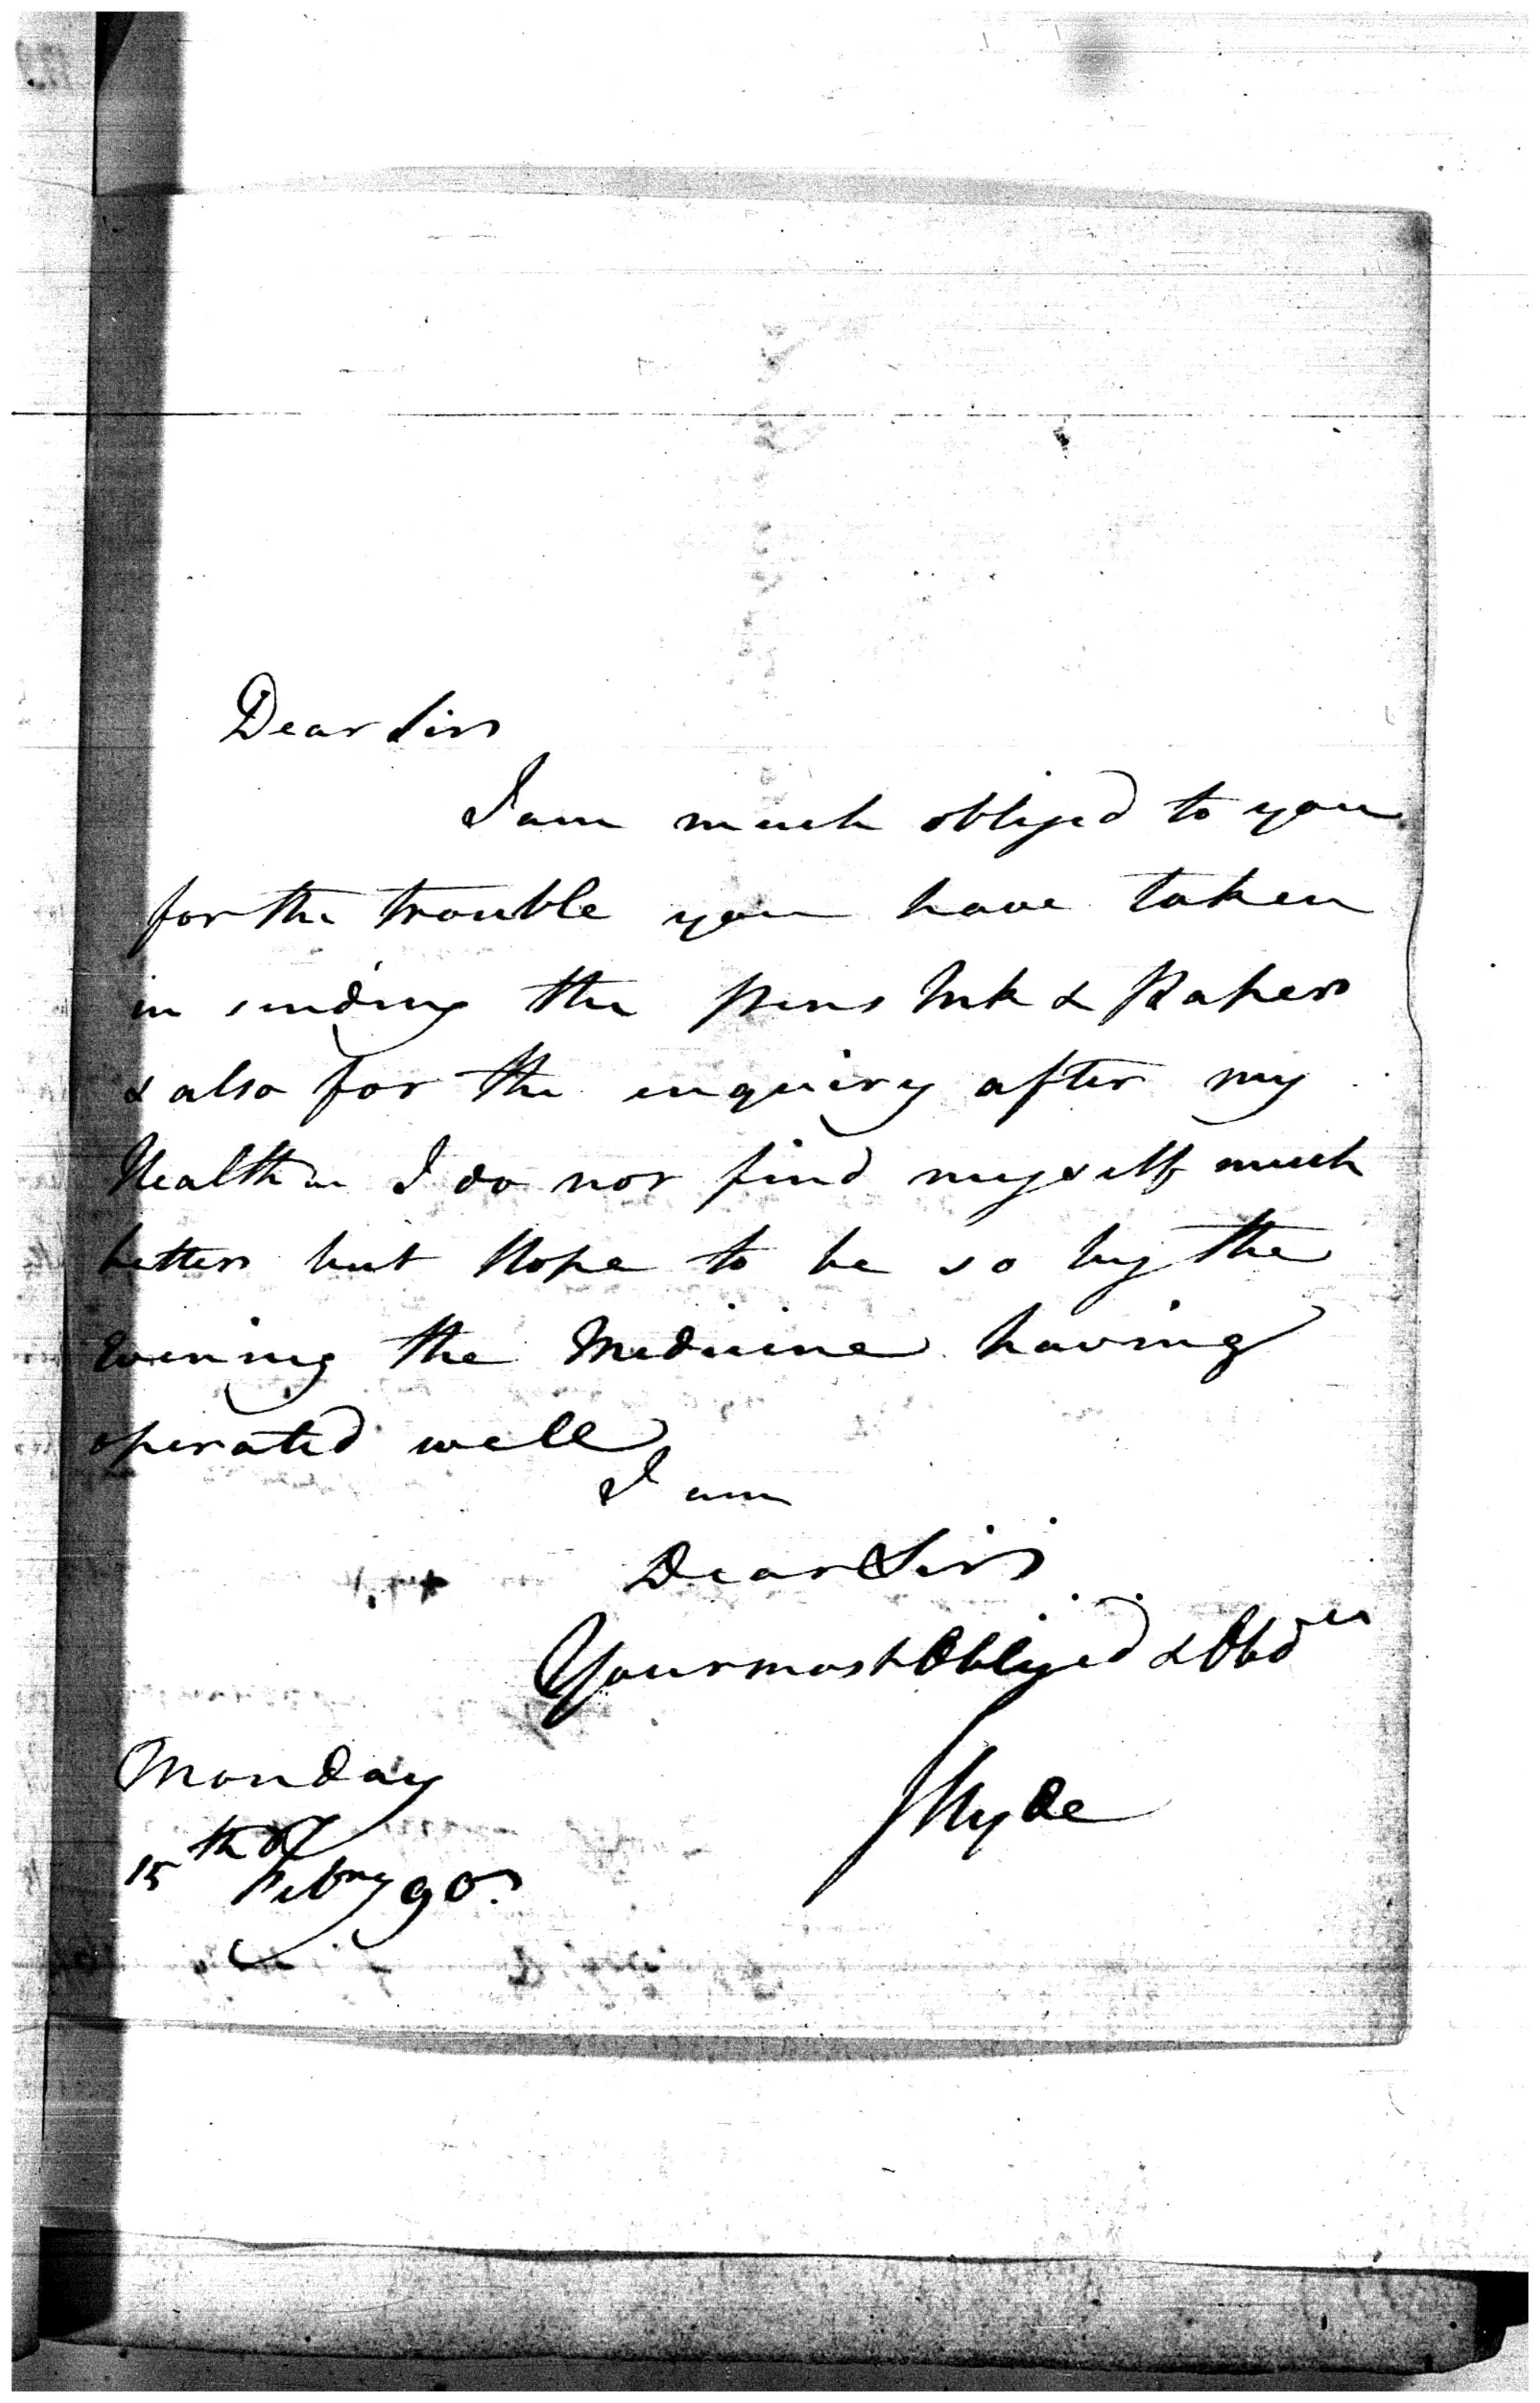 Dear Sir
I am much obliged to you
for the trouble you have taken
in sending the Pens Ink & Paper
& also for the enquiry after my
Health I do not find myself much
better but Hope to be so by the
Evening the Medicine having
operated well
I am
Dear Sir
Your most Obliged &
Hyde
Monday
15th
Febry 90.